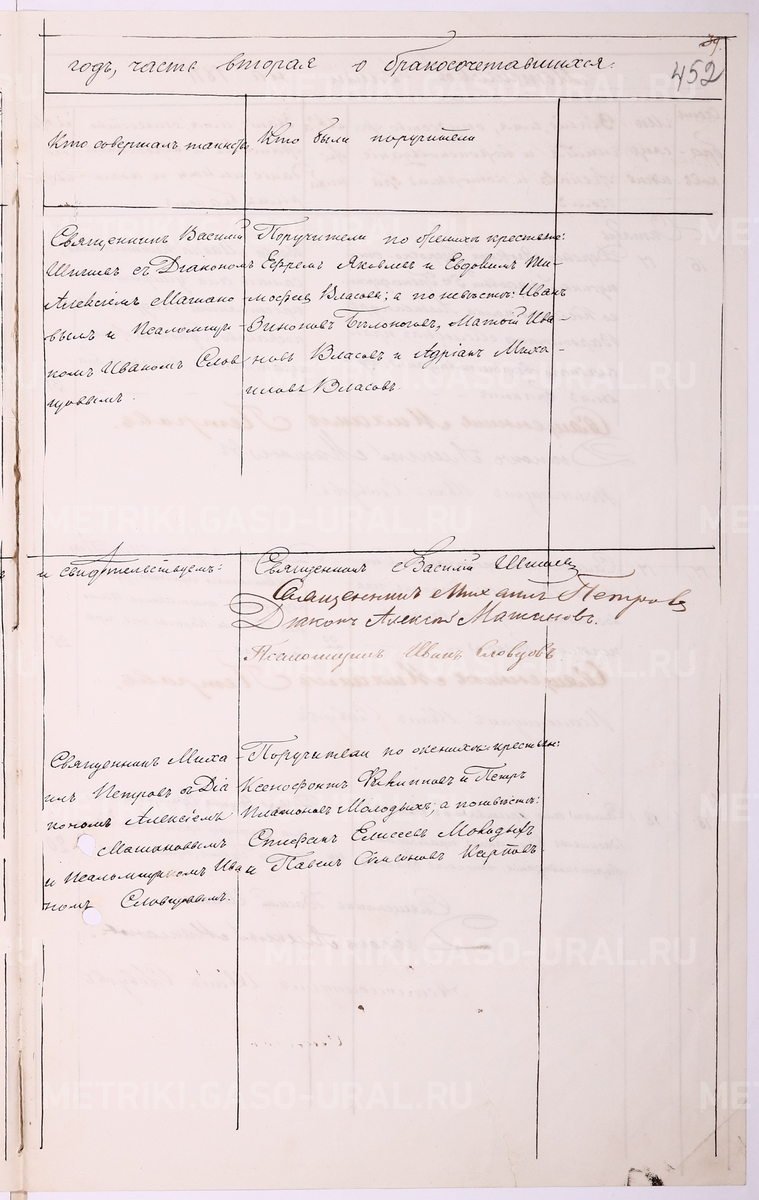 39.
452
годъ, часть вторая о бракосочетавшихся.
Кто совершалъ таинство
Кто были поручители
Священникъ Василій
Шишевъ съ Діакономъ
Алексіемъ Машано-
вымъ и Псаломщи-
комъ Иваномъ Слов
цовымъ.
Поручители по женихѣ крестьяне:
Ефремъ Яковлевъ и Евдокимъ Ти-
мофеевъ Власовы; а по невѣстѣ: Иванъ
Зиновъ Бѣлоноговъ, Матѳій Ива-
новъ Власовъ и Адріанъ Миха-
иловъ Власовъ
и свидѣтельствуемъ:
Священникъ Василій Шишевъ
Священникъ Михаилъ Петровъ
Діаконъ Алексій Машановъ.
Псаломщикъ Иванъ Словцовъ
Священникъ Миха-
илъ Петровъ съ Діа
кономъ Алексіемъ
Машановымъ
и Псаломщикомъ Ива
номъ Словцовымъ.
Поручители по женихѣ: крестьян:
Ксенофонтъ Филипповъ и Петръ
Платоновъ Молодыхъ; а по невѣстѣ:
Стефанъ Елисеевъ Молодыхъ
и Павелъ Самсоновъ Карповъ.
METRIKI.GASO-URAL.RU